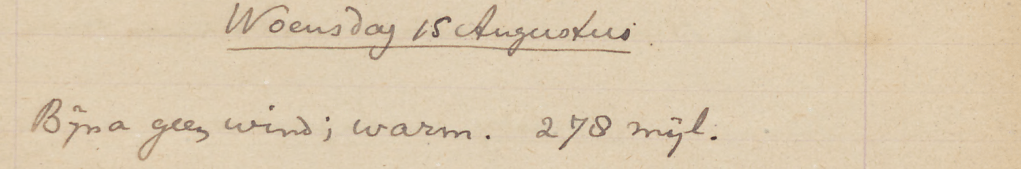 Woensdag 15 Augustus.
Bÿna geen wind; warm. 278 mÿl.